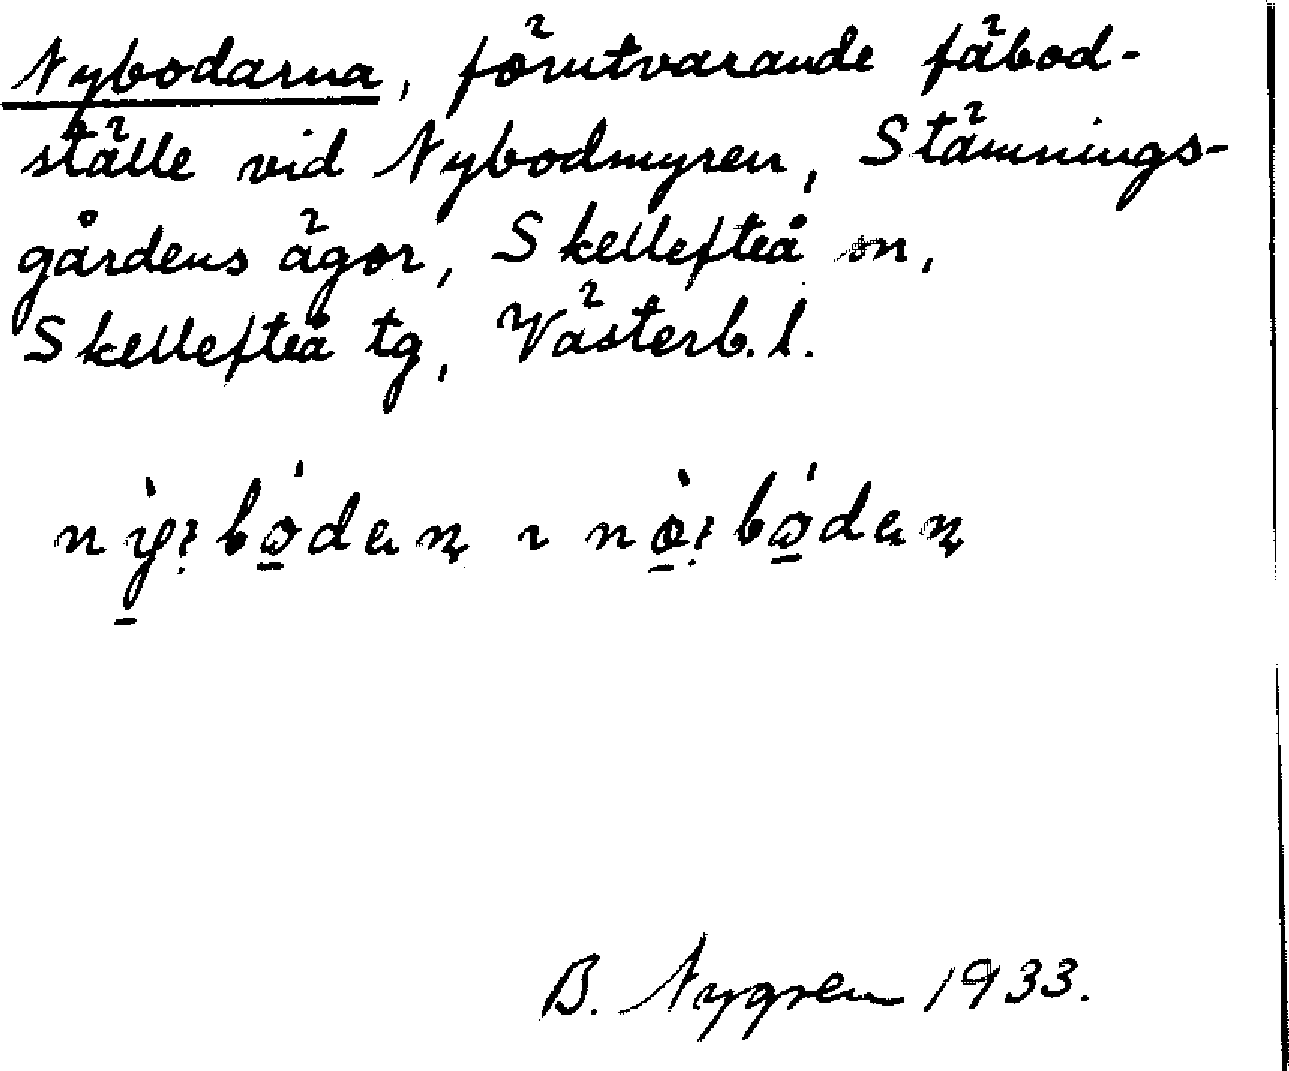 Nybodarna, förutvarande fäbod-
ställe vid Nybodmyren, Stämnings-
gårdens ägor, Skellefteå sn,
Skellefteå tg, Västerb. l.
B. Nygren 1933.